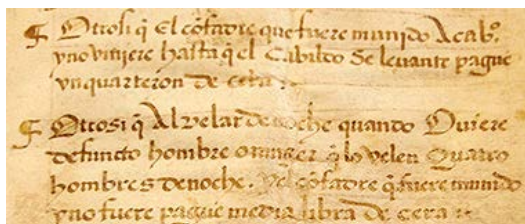 ¶ Ottosi q̃ El cõfadre que fuere munido Acab.º
y no viniere hasta q̃ el Cabildo Se levante pague
vn quarteron de cera.
¶ Ottosi q̃ Al velar de noche quando Oviere
defuncto hombre o muger q̃ lo velen Quatro
hombres de noche. y el cõfadre q̃ fuere munido
y no fuere pague media libra de cera.